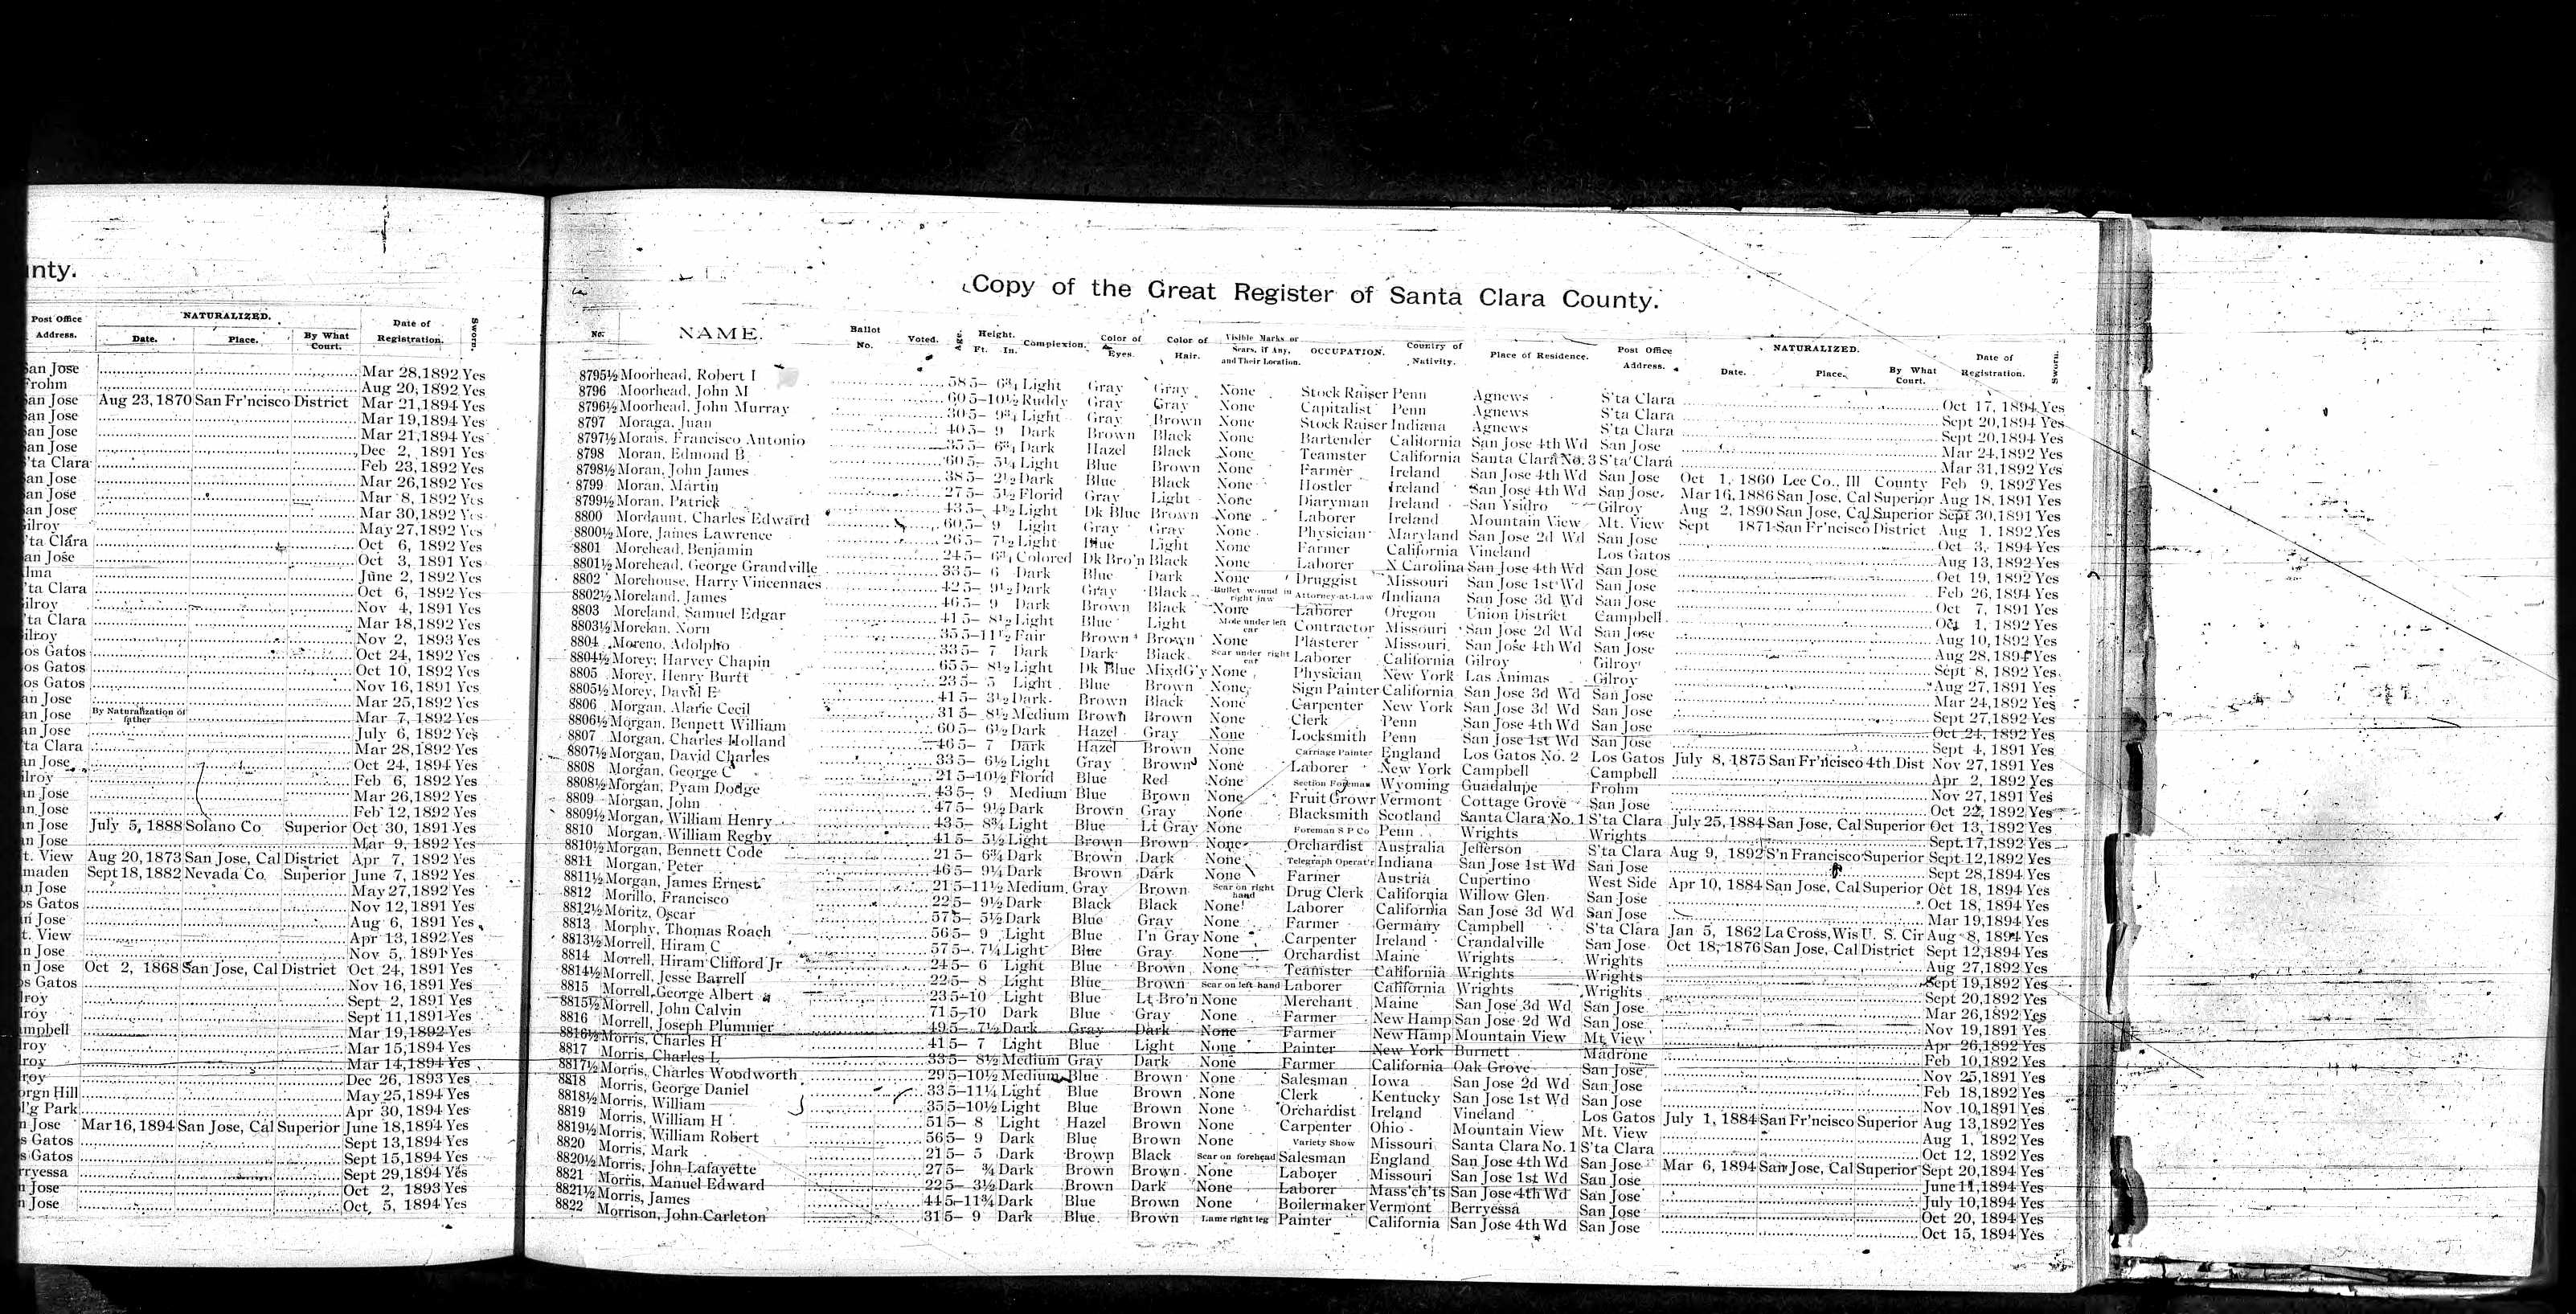 unty.
Post Office Address. NATURALIZED. Date. Place. By What Court. Date of Registration. Sworn.
San Jose Mar 28, 1892 Yes
Frohm Aug 20, 1892 Yes
San Jose Aug 23, 1870 San Fr'ncisco District Mar 21, 1894 Yes
San Jose Mar 19, 1894 Yes
San Jose Mar 21, 1894 Yes
San Jose Dec 2, 1891 Yes
S'ta Clara Feb 23, 1892 Yes
San Jose Mar 26, 1892 Yes
San Jose Mar 8, 1892 Yes
San Jose Mar 30, 1892 Yes
ilroy May 27, 1892 Yes
'ta Clara Oct 6, 1892 Yes
an Jose Oct 3, 1891 Yes
lma June 2, 1892 Yes
'ta Clara Oct 6, 1892 Yes
ilroy Nov 4, 1891 Yes
'ta Clara Mar 18, 1892 Yes
ilroy Nov 2, 1893 Yes
os Gatos Oct 24, 1892 Yes
os Gatos Oct 10, 1892 Yes
os Gatos Nov 16, 1891 Yes
an Jose Mar 25, 1892 Yes
an Jose By Naturalization of father Mar 7, 1892 Yes
an Jose July 6, 1892 Yes
'ta Clara Mar 28, 1892 Yes
an Jose Oct 24, 1894 Yes
ilroy Feb 6, 1892 Yes
an Jose Mar 26, 1892 Yes
an Jose Feb 12, 1892 Yes
an Jose July 5, 1888 Solano Co Superior Oct 30, 1891 Yes
an Jose Mar 9, 1892 Yes
t. View Aug 20, 1873 San Jose, Cal District Apr 7, 1892 Yes
maden Sept 18, 1882 Nevada Co Superior June 7, 1892 Yes
n Jose May 27, 1892 Yes
os Gatos Nov 12, 1891 Yes
n Jose Aug 6, 1891 Yes
t. View Apr 13, 1892 Yes
n Jose Nov 5, 1891 Yes
n Jose Oct 2, 1868 San Jose, Cal District Oct 24, 1891 Yes
os Gatos Nov 16, 1891 Yes
lroy Sept 2, 1891 Yes
lroy Sept 11, 1891 Yes
mpbell Mar 19, 1892 Yes
lroy Mar 15, 1894 Yes
roy Mar 14, 1894 Yes
roy Dec 26, 1893 Yes
orgn Hill May 25, 1894 Yes
l'g Park Apr 30, 1894 Yes
n Jose Mar 16, 1894 San Jose, Cal Superior June 18, 1894 Yes
s Gatos Sept 13, 1894 Yes
s Gatos Sept 15, 1894 Yes
rryessa Sept 29, 1894 Yes
n Jose Oct 2, 1893 Yes
n Jose Oct 5, 1894 Yes
Copy of the Great Register of Santa Clara County.
No. NAME. Ballot No. Voted. Age. Height. Ft. In. Complexion. Color of Eyes. Color of Hair. Visible Marks or Scars, if Any, and Their Location. OCCUPATION. Country of Nativity. Place of Residence. Post Office Address. NATURALIZED. Date. Place. By What Court. Date of Registration. Sworn.
8795½ Moorhead, Robert I 58 5– 6¾ Light Gray Gray None Stock Raiser Penn Agnews S'ta Clara Oct 17, 1894 Yes
8796 Moorhead, John M 60 5–10½ Ruddy Gray Gray None Capitalist Penn Agnews S'ta Clara Sept 20, 1894 Yes
8796½ Moorhead, John Murray 30 5– 9¾ Light Gray Brown None Stock Raiser Indiana Agnews S'ta Clara Sept 20, 1894 Yes
8797 Moraga, Juan 40 5– 9 Dark Brown Black None Bartender California San Jose 4th Wd San Jose Mar 24, 1892 Yes
8797½ Morais, Francisco Antonio 35 5– 6¾ Dark Hazel Black None Teamster California Santa Clara No. 3 S'ta Clara Mar 31, 1892 Yes
8798 Moran, Edmond B 60 5– 5¼ Light Blue Brown None Farmer Ireland San Jose 4th Wd San Jose Oct 1, 1860 Lee Co., Ill County Feb 9, 1892 Yes
8798½ Moran, John James 38 5– 2½ Dark Blue Black None Hostler Ireland San Jose 4th Wd San Jose Mar 16, 1886 San Jose, Cal Superior Aug 18, 1891 Yes
8799 Moran, Martin 27 5– 5½ Florid Gray Light None Diaryman Ireland San Ysidro Gilroy Aug 2, 1890 San Jose, Cal Superior Sept 30, 1891 Yes
8799½ Moran, Patrick 43 5– 4½ Light Dk Blue Brown None Laborer Ireland Mountain View Mt. View Sept 1871 San Fr'ncisco District Aug 1, 1892 Yes
8800 Mordaunt, Charles Edward 60 5– 9 Light Gray Gray None Physician Maryland San Jose 2d Wd San Jose Oct 3, 1894 Yes
8800½ More, James Lawrence 26 5– 7½ Light Blue Light None Farmer California Vineland Los Gatos Aug 13, 1892 Yes
8801 Morehead, Benjamin 24 5– 6¾ Colored Dk Bro'n Black None Laborer N Carolina San Jose 4th Wd San Jose Oct 19, 1892 Yes
8801½ Morehead, George Grandville 33 5– 6 Dark Blue Dark None Druggist Missouri San Jose 1st Wd San Jose Feb 26, 1894 Yes
8802 Morehouse, Harry Vincennaes 42 5– 9½ Dark Gray Black Bullet wound in right jaw Attorney-at-Law Indiana San Jose 3d Wd San Jose Oct 7, 1891 Yes
8802½ Moreland, James 46 5– 9 Dark Brown Black None Laborer Oregon Union District Campbell Oct 1, 1892 Yes
8803 Moreland, Samuel Edgar 41 5– 8½ Light Blue Light Mole under left ear Contractor Missouri San Jose 2d Wd San Jose Aug 10, 1892 Yes
8803½ Morelan, Norn 35 5–11½ Fair Brown Brown None Plasterer Missouri San Jose 4th Wd San Jose Aug 28, 1894 Yes
8804 Moreno, Adolpho 33 5– 7 Dark Dark Black Scar under right ear Laborer California Gilroy Gilroy Sept 8, 1892 Yes
8804½ Morey, Harvey Chapin 65 5– 8½ Light Dk Blue MixdG'y None Physician New York Las Animas Gilroy Aug 27, 1891 Yes
8805 Morey, Henry Burtt 23 5– 5 Light Blue Brown None Sign Painter California San Jose 3d Wd San Jose Mar 24, 1892 Yes
8805½ Morey, David E 41 5– 3½ Dark Brown Black None Carpenter New York San Jose 3d Wd San Jose Sept 27, 1892 Yes
8806 Morgan, Alaric Cecil 31 5– 8½ Medium Brown Brown None Clerk Penn San Jose 4th Wd San Jose Oct 24, 1892 Yes
8806½ Morgan, Bennett William 60 5– 6½ Dark Hazel Gray None Locksmith Penn San Jose 1st Wd San Jose Sept 4, 1891 Yes
8807 Morgan, Charles Holland 46 5– 7 Dark Hazel Brown None Carriage Painter England Los Gatos No. 2 Los Gatos July 8, 1875 San Fr'ncisco 4th Dist Nov 27, 1891 Yes
8807½ Morgan, David Charles 33 5– 6½ Light Gray Brown None Laborer New York Campbell Campbell Apr 2, 1892 Yes
8808 Morgan, George C 21 5–10½ Florid Blue Red None Section Foreman Wyoming Guadalupe Frohm Nov 27, 1891 Yes
8808½ Morgan, Pyam Dodge 43 5– 9 Medium Blue Brown None Fruit Growr Vermont Cottage Grove San Jose Oct 22, 1892 Yes
8809 Morgan, John 47 5– 9½ Dark Brown Gray None Blacksmith Scotland Santa Clara No. 1 S'ta Clara July 25, 1884 San Jose, Cal Superior Oct 13, 1892 Yes
8809½ Morgan, William Henry 43 5– 8¾ Light Blue Lt Gray None Foreman S P Co Penn Wrights Wrights Sept 17, 1892 Yes
8810 Morgan, William Regby 41 5– 5½ Light Brown Brown None Orchardist Australia Jefferson S'ta Clara Aug 9, 1892 S'n Francisco Superior Sept 12, 1892 Yes
8810½ Morgan, Bennett Code 21 5– 6¾ Dark Brown Dark None Telegraph Operat'r Indiana San Jose 1st Wd San Jose Sept 28, 1894 Yes
8811 Morgan, Peter 46 5– 9¼ Dark Brown Dark None Farmer Austria Cupertino West Side Apr 10, 1884 San Jose, Cal Superior Oct 18, 1894 Yes
8811½ Morgan, James Ernest 21 5–11½ Medium Gray Brown Scar on right hand Drug Clerk California Willow Glen San Jose Oct 18, 1894 Yes
8812 Morillo, Francisco 22 5– 9½ Dark Black Black None Laborer California San Jose 3d Wd San Jose Mar 19, 1894 Yes
8812½ Moritz, Oscar 57 5– 5½ Dark Blue Gray None Farmer Germany Campbell S'ta Clara Jan 5, 1862 La Cross, Wis U. S. Cir Aug 8, 1894 Yes
8813 Morphy, Thomas Roach 56 5– 9 Light Blue I'n Gray None Carpenter Ireland Crandalville San Jose Oct 18, 1876 San Jose, Cal District Sept 12, 1894 Yes
8813½ Morrell, Hiram C 57 5– 7¼ Light Blue Gray None Orchardist Maine Wrights Wrights Aug 27, 1892 Yes
8814 Morrell, Hiram Clifford Jr 24 5– 6 Light Blue Brown None Teamster California Wrights Wrights Sept 19, 1892 Yes
8814½ Morrell, Jesse Barrell 22 5– 8 Light Blue Brown Scar on left hand Laborer California Wrights Wrights Sept 20, 1892 Yes
8815 Morrell, George Albert 23 5–10 Light Blue Lt Bro'n None Merchant Maine San Jose 3d Wd San Jose Mar 26, 1892 Yes
8815½ Morrell, John Calvin 71 5–10 Dark Blue Gray None Farmer New Hamp San Jose 2d Wd San Jose Nov 19, 1891 Yes
8816 Morrell, Joseph Plummer 49 5– 7½ Dark Gray Dark None Farmer New Hamp Mountain View Mt. View Apr 26, 1892 Yes
8816½ Morris, Charles H 41 5– 7 Light Blue Light None Painter New York Burnett Madrone Feb 10, 1892 Yes
8817 Morris, Charles L 33 5– 8½ Medium Gray Dark None Farmer California Oak Grove San Jose Nov 25, 1891 Yes
8817½ Morris, Charles Woodworth 29 5–10½ Medium Blue Brown None Salesman Iowa San Jose 2d Wd San Jose Feb 18, 1892 Yes
8818 Morris, George Daniel 33 5–11¼ Light Blue Brown None Clerk Kentucky San Jose 1st Wd San Jose Nov 10, 1891 Yes
8818½ Morris, William 35 5–10½ Light Blue Brown None Orchardist Ireland Vineland Los Gatos July 1, 1884 San Fr'ncisco Superior Aug 13, 1892 Yes
8819 Morris, William H 51 5– 8 Light Hazel Brown None Carpenter Ohio Mountain View Mt. View Aug 1, 1892 Yes
8819½ Morris, William Robert 56 5– 9 Dark Blue Brown None Variety Show Missouri Santa Clara No. 1 S'ta Clara Oct 12, 1892 Yes
8820 Morris, Mark 21 5– 5 Dark Brown Black Scar on forehead Salesman England San Jose 4th Wd San Jose Mar 6, 1894 San Jose, Cal Superior Sept 20, 1894 Yes
8820½ Morris, John Lafayette 27 5– ¾ Dark Brown Brown None Laborer Missouri San Jose 1st Wd San Jose June 11, 1894 Yes
8821 Morris, Manuel Edward 22 5– 3½ Dark Brown Dark None Laborer Mass'ch'ts San Jose 4th Wd San Jose July 10, 1894 Yes
8821½ Morris, James 44 5–11¾ Dark Blue Brown None Boilermaker Vermont Berryessa San Jose Oct 20, 1894 Yes
8822 Morrison, John Carleton 31 5– 9 Dark Blue Brown Lame right leg Painter California San Jose 4th Wd San Jose Oct 15, 1894 Yes